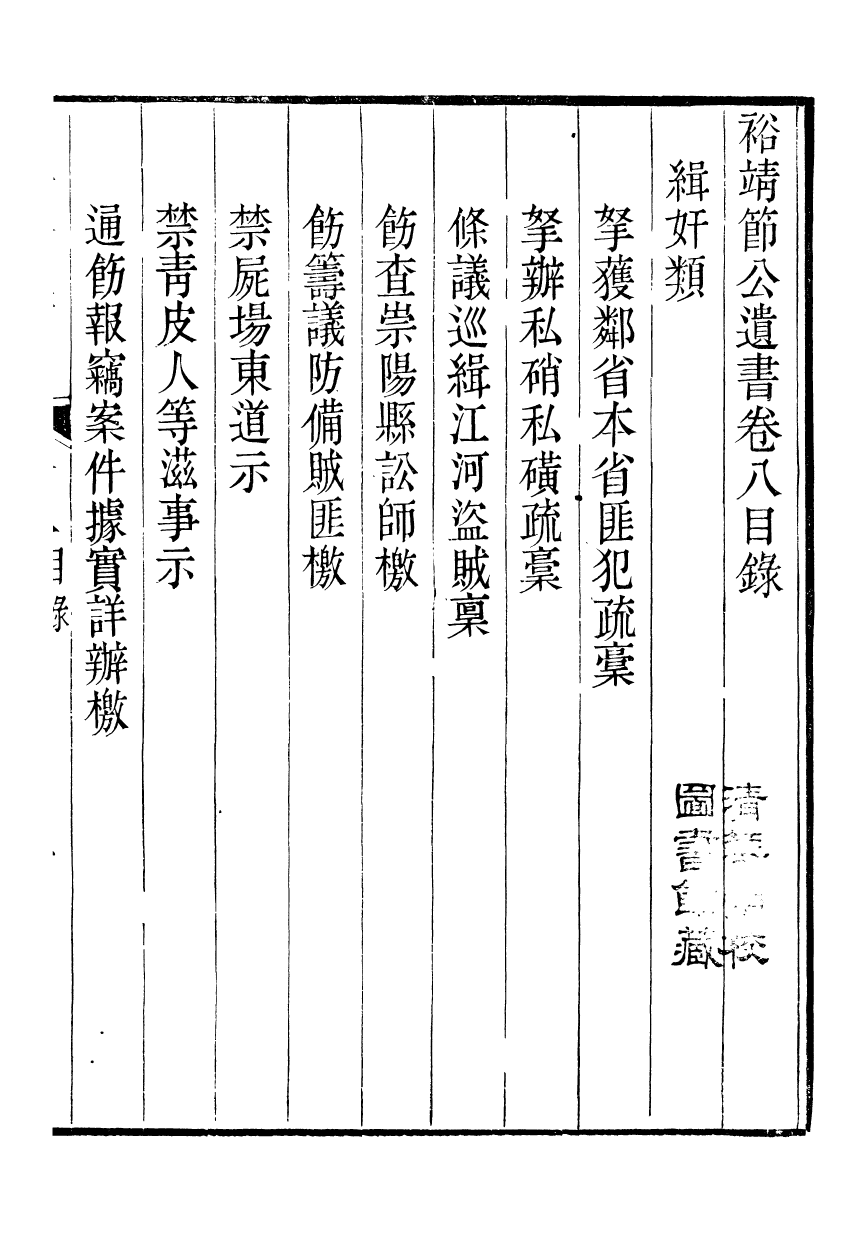 裕靖節公遺書卷八目錄
緝奸類
拏獲鄰省本省匪犯疏稾
拏辦私硝私磺疏稾
條議巡緝江河盜賊稟
飭查崇陽縣訟師檄
飭籌議防備賊匪檄
禁屍場東道示
禁靑皮人等滋事示
通飭報竊案件據實詳辦檄
目錄
清華
校
圖書館藏